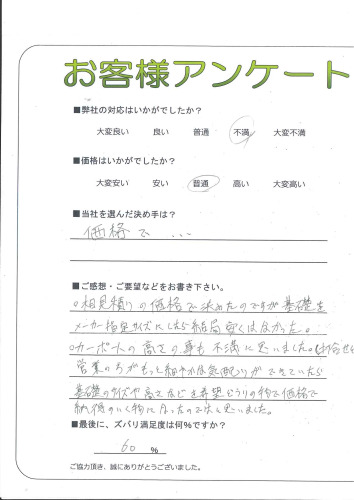 お客様アンケート
■弊社の対応はいかがでしたか？
大変良い 良い 普通 不満 大変不満
■価格はいかがでしたか？
大変安い 安い 普通 高い 大変高い
■当社を選んだ決め手は？
価格で…
■ご感想・ご要望などをお書き下さい。
○相見積りの価格で決めたのですが基礎を
メーカー指定サイズにしたら結局安くはなかった。
○カーポートの高さの事も不満に思いました。
営業の方がもっと細やかな気配りができていたら
基礎のサイズや高さなどを希望どうりの物で価格で
納得のいく物になったのでは思いました。
■最後に、ズバリ満足度は何％ですか？
60 ％
ご協力頂き、誠にありがとうございました。